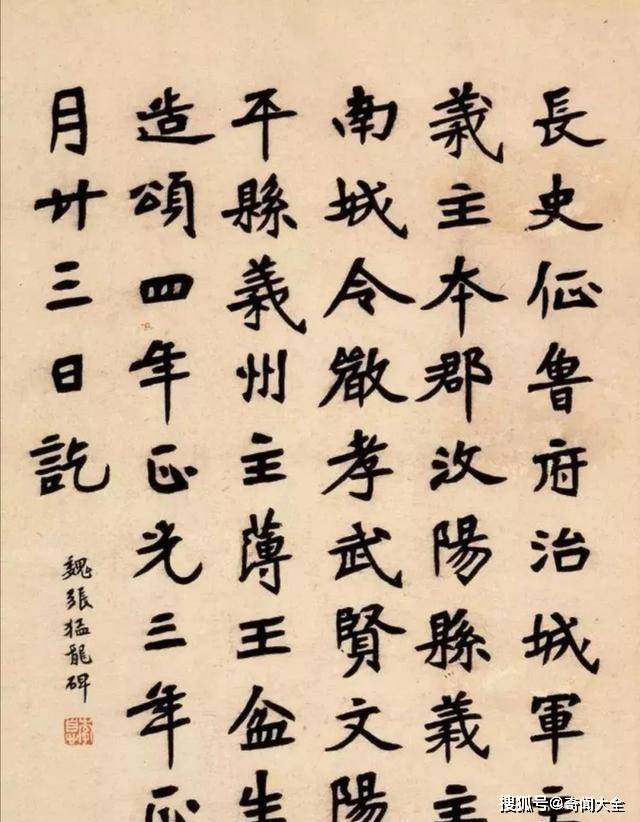 長史征魯府治城軍主
義主本郡汝陽縣義主
南城令嚴孝武賢文陽
平縣義州主薄王盆生
造頌四年正光三年正
月廿三日訖
魏張猛龍碑
搜狐号@奇闻大全